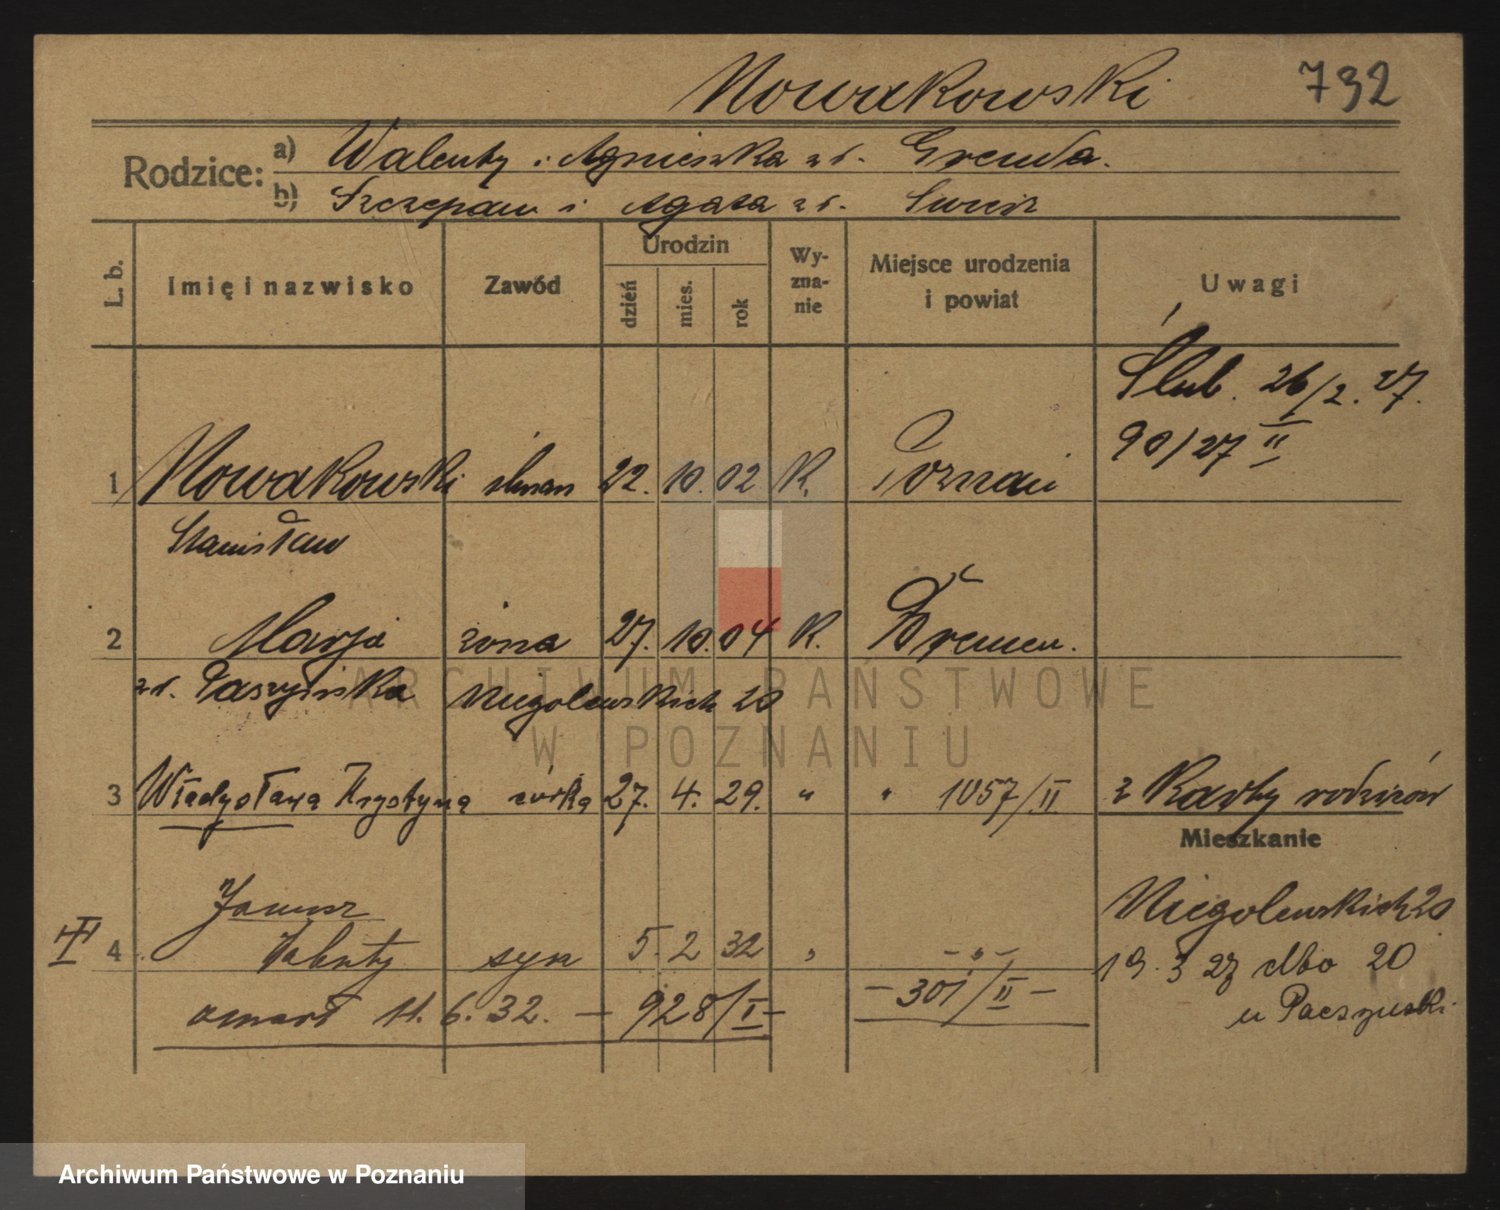 Nowakowski 732
Rodzice: a) Walenty i Agnieszka z d. Grenda.
b) Szczepan i Agata z d.
L. b. Imię i nazwisko Zawód Urodzin dzień mies. rok Wy-zna-nie Miejsce urodzenia i powiat Uwagi
Ślub. 26/2. 27.
90/27 II
1 Nowakowski 22. 10. 02 K. Poznań
Stanisław
2 Marja żona 27. 10. 04 K.
z d. Niegolewskich 20
3 Władysława Krystyna córka 27. 4. 29. " " 1057/II. z Karty rodziców
Mieszkanie
Janusz Niegolewskich 20
4 Walenty syn 5. 2 32 " - " -
19. 3 27 dbo 20
zmarł 11. 6. 32. - 928/I - - 301/II -
u
ARCHIWUM PAŃSTWOWE
W POZNANIU
Archiwum Państwowe w Poznaniu